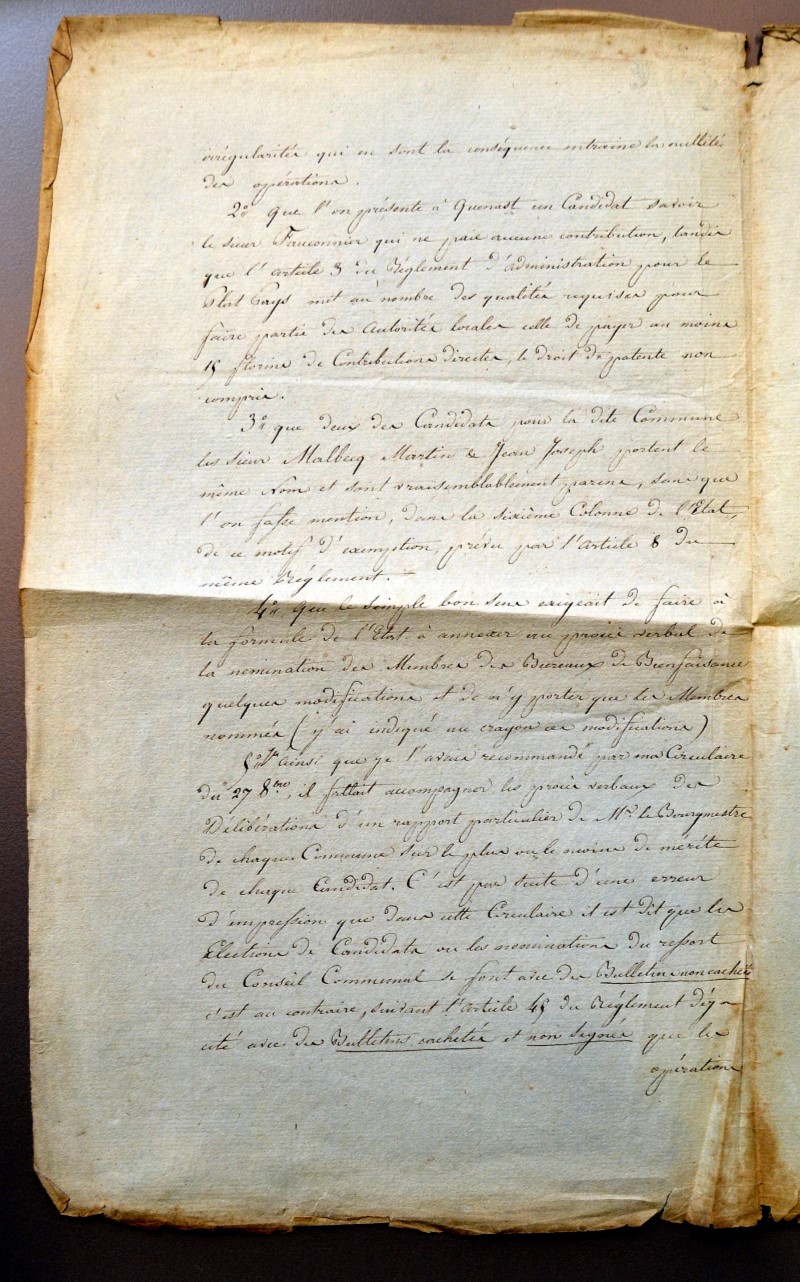 irrégularités qui en sont la conséquence entraine la nullité
des opérations.
2.° que l'on présente à Quenast un Candidat savoir
le sieur Fauconnier qui ne paie aucune contribution, tandis
que l'article 3 du Réglement d'administration pour le
Plat Pays met au nombre des qualités requises pour
faire partie des autorités locales celle de payer au moins
15 florins de Contributions directes, le droit de patente non
compris.
3.° que deux des Candidats pour la dite Commune
les sieur Malbecq Martin & Jean Joseph portent le
même Nom et sont vraisemblablement parens, sans que
l'on fasse mention, dans la sixième Colonne de l'Etat,
de ce motif d'exemption, prévu par l'article 8 du
même Réglement.
4.° que le simple bon sens exigeait de faire à
la formule de l'Etat à annexer au procès verbal de
la nomination des Membres des Bureaux de Bienfaisance
quelques modifications et de n'y porter que les Membres
nommés (j'ai indiqué au crayon ces modifications)
5.° qu'ainsi que je l'avais recommandé par ma Circulaire
du 27 8bre, il fallait accompagner les procès verbaux des
Délibérations d'un rapport particulier de Mr. le Bourgmestre
de chaque Commune sur le plus ou le moins de mérite
de chaque Candidat. C'est par suite d'une erreur
d'impression que dans cette Circulaire il est dit que les
Elections de Candidats ou les nominations du ressort
du Conseil Communal se font avec des Bulletins non cachetés
c'est au contraire, suivant l'article 45 du Réglement déjà
cité avec des Bulletins cachetés et non signés que les
opérations